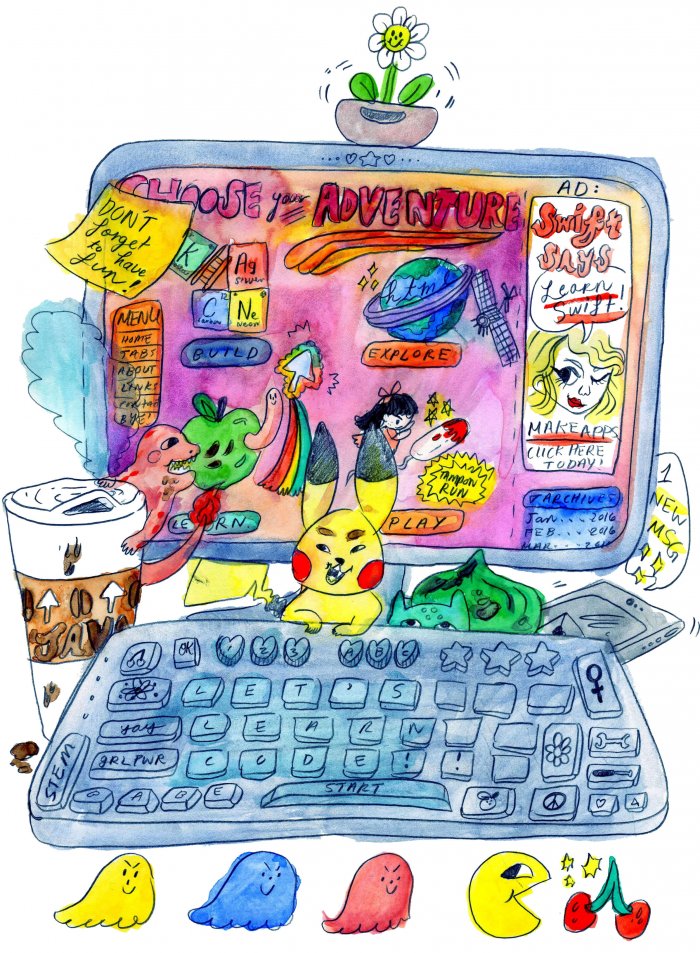 CHOOSE your ADVENTURE
DON'T
forget
to have
fun!
K
Ag
C
Ne
MENU
HOME
TABS
ABOUT
LINKS
BYE!
BUILD
html
EXPLORE
LEARN
TAMPON
RUN
PLAY
AD:
Swift
SAYS
Learn
Swift!
MAKE APPS
CLICK HERE
TODAY!
ARCHIVES
Jan...2016
FEB...2016
MAR...
1
NEW
MSG
JAVA
OK
LET'S
yay
LEARN
GRLPWR
CODE!!
STEM
START